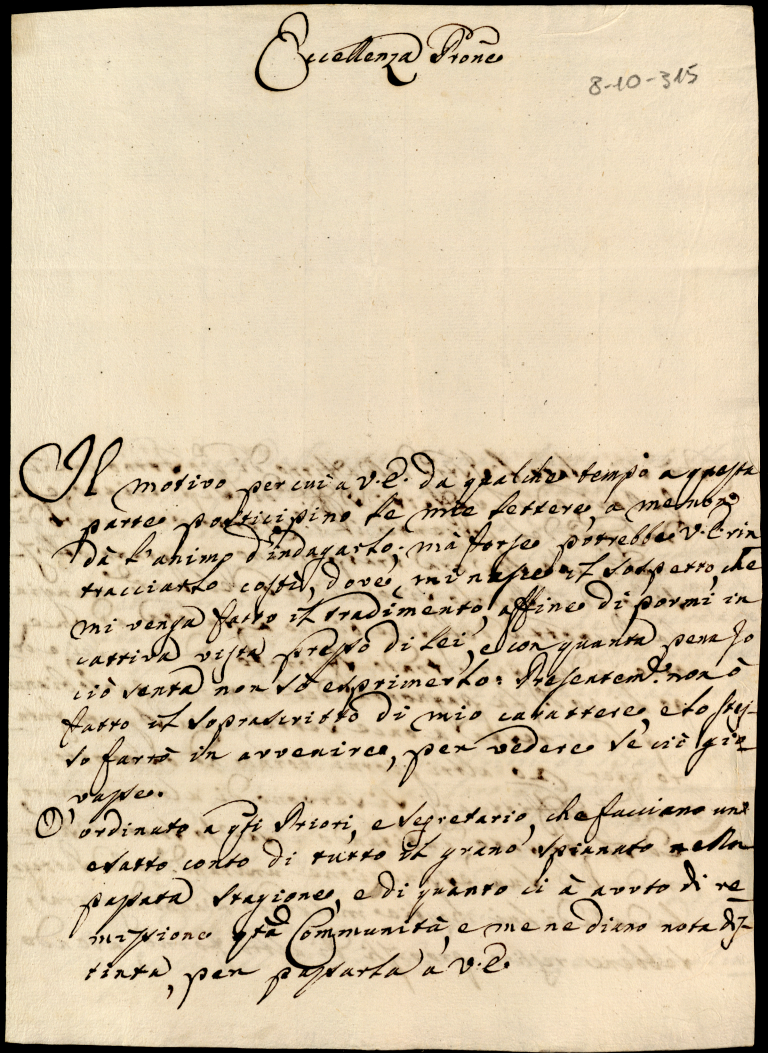 Eccellenza Prone
8-10-315
Il motivo per cui a V.E. da qualche tempo a questa
parte posticipino le mie lettere, a me non
dà l'animo d'indagarlo; mà forse potrebbe V.E. rin
tracciarlo costì, dove mi nasce il sospetto, che
mi venga fatto il tradimento, affine di pormi in
cattiva vista presso di lei, e con quanta pena Io
ciò senta non sò esprimerlo: Presentem.e non ò
fatto il soprascritto di mio carattere, e lo stes-
so farrò in avvenire, per vedere se ciò gio_
vasse.
O' ordinato a q̃sti Priori, e Segretario, che facciano un'
esatto conto di tutto il grano spianato nella
passata stagione, e di quanto ci à avuto di re_
missione q̃sta Communità, e me ne diano nota dis-
tinta, per passarla a V.E.